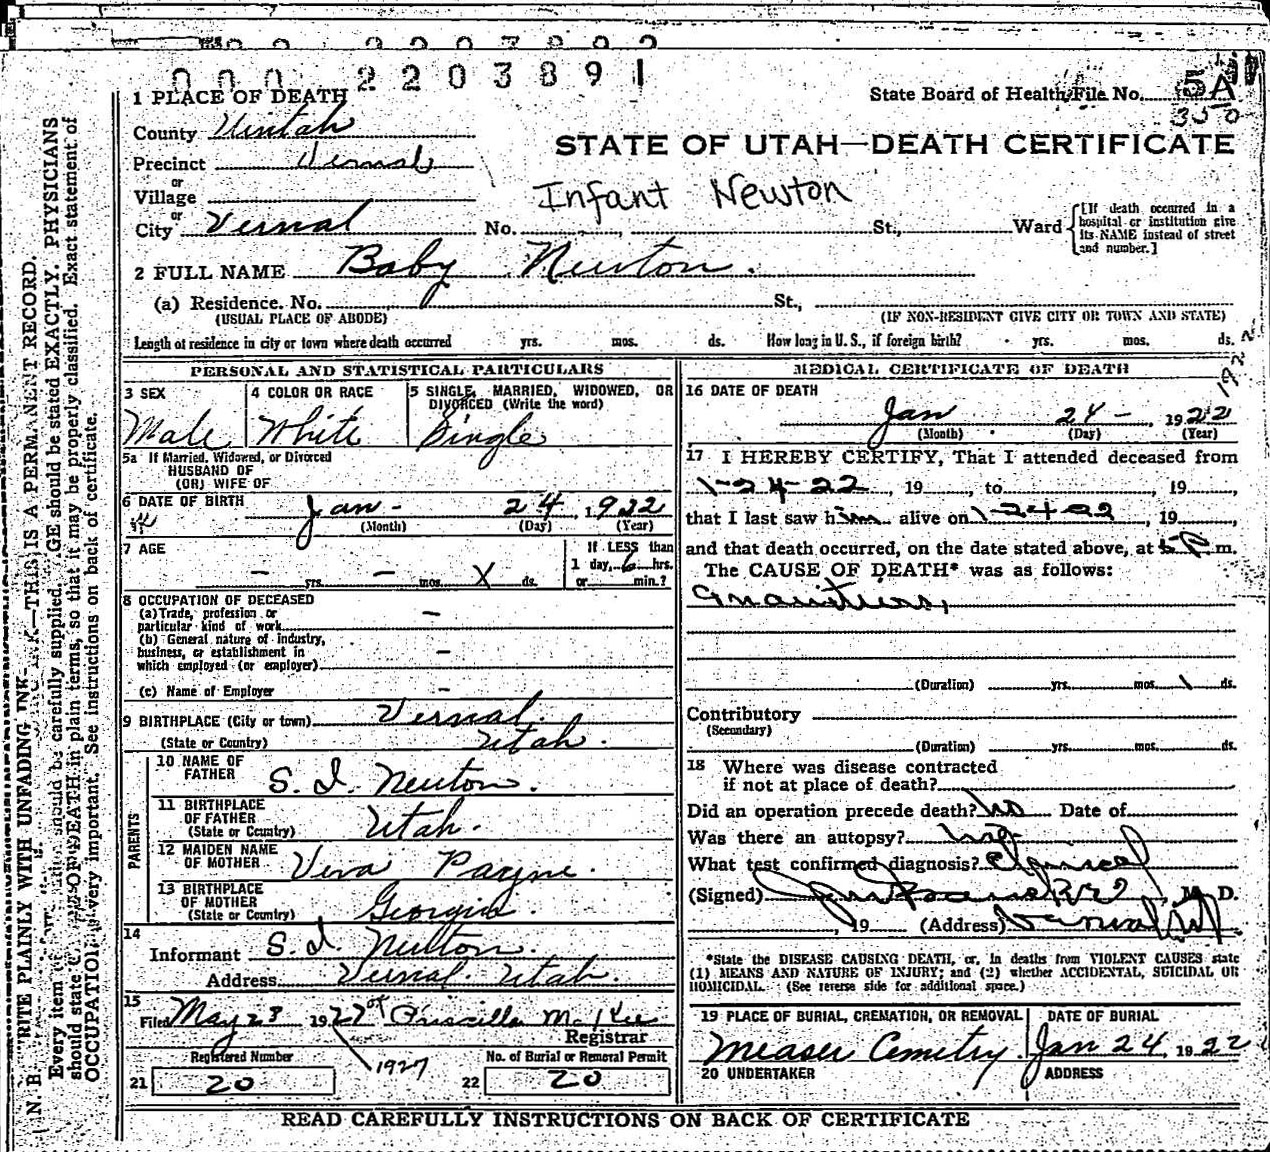 000 2203891
1 PLACE OF DEATH
State Board of Health File No. 5A
350
County Uintah
STATE OF UTAH—DEATH CERTIFICATE
Precinct Vernal
or
Village
Infant Newton
or
City Vernal No. , St., Ward [If death occurred in a hospital or institution give its NAME instead of street and number.]
2 FULL NAME Baby Newton.
(a) Residence. No. St.,
(USUAL PLACE OF ABODE) (IF NON-RESIDENT GIVE CITY OR TOWN AND STATE)
Length of residence in city or town where death occurred yrs. mos. ds. How long in U. S., if foreign birth? yrs. mos. ds.
1922
PERSONAL AND STATISTICAL PARTICULARS
3 SEX
Male
4 COLOR OR RACE
White
5 SINGLE, MARRIED, WIDOWED, OR DIVORCED (Write the word)
Single
5a If Married, Widowed, or Divorced
HUSBAND OF
(OR) WIFE OF
6 DATE OF BIRTH Jan - 24 1922
(Month) (Day) (Year)
7 AGE
— yrs. — mos. X ds.
If LESS than
1 day, 6 hrs.
or min.?
8 OCCUPATION OF DECEASED
(a) Trade, profession or
particular kind of work —
(b) General nature of industry,
business, or establishment in
which employed (or employer) —
(c) Name of Employer —
9 BIRTHPLACE (City or town) Vernal.
(State or Country) Utah.
PARENTS
10 NAME OF
FATHER S. I. Newton.
11 BIRTHPLACE
OF FATHER
(State or Country) Utah.
12 MAIDEN NAME
OF MOTHER Vera Payne.
13 BIRTHPLACE
OF MOTHER
(State or Country) Georgia.
14
Informant S. I. Newton.
Address Vernal. Utah.
15
Filed May 23 1927 Priscilla McKee
Registrar
1927
Registered Number
21 20
No. of Burial or Removal Permit
22 20
MEDICAL CERTIFICATE OF DEATH
16 DATE OF DEATH
Jan 24 - 1922
(Month) (Day) (Year)
17 I HEREBY CERTIFY, That I attended deceased from
1-24-22, 19 , to , 19 ,
that I last saw him alive on 1-24-22, 19 ,
and that death occurred, on the date stated above, at m.
The CAUSE OF DEATH* was as follows:
(Duration) yrs. mos. 1 ds.
Contributory
(Secondary)
(Duration) yrs. mos. ds.
18 Where was disease contracted
if not at place of death?
Did an operation precede death? No Date of
Was there an autopsy? No
What test confirmed diagnosis? Clinical
(Signed) , M. D.
, 19 (Address) Vernal Ut.
*State the DISEASE CAUSING DEATH, or, in deaths from VIOLENT CAUSES state
(1) MEANS AND NATURE OF INJURY; and (2) whether ACCIDENTAL, SUICIDAL OR
HOMICIDAL. (See reverse side for additional space.)
19 PLACE OF BURIAL, CREMATION, OR REMOVAL
Measer Cemetry.
DATE OF BURIAL
Jan 24, 1922
20 UNDERTAKER ADDRESS
READ CAREFULLY INSTRUCTIONS ON BACK OF CERTIFICATE
N. B. WRITE PLAINLY WITH UNFADING INK—THIS IS A PERMANENT RECORD.
Every item should be carefully supplied. AGE should be stated EXACTLY. PHYSICIANS
should state CAUSE OF DEATH in plain terms, so that it may be properly classified. Exact statement of
OCCUPATION is very important. See instructions on back of certificate.